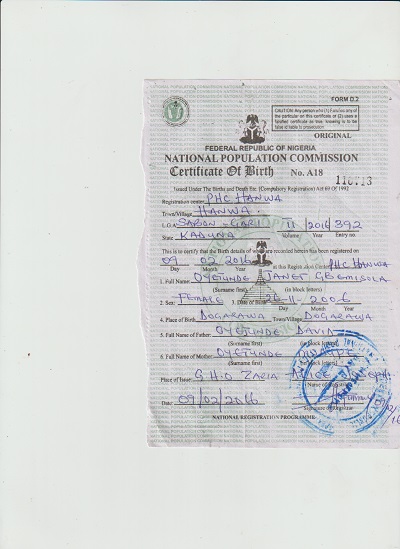 FORM D.2
CAUTION: Any person who (1) Falsifies any of
the particular on this certificate or (2) uses a
falsified certificate as true, knowing it to be
false is liable to prosecution.
ORIGINAL
FEDERAL REPUBLIC OF NIGERIA
NATIONAL POPULATION COMMISSION
Certificate Of Birth No. A18
Issued Under The Births and Death Etc. (Compulsory Registration) Act 69 Of 1992
Registration center PHC HANWA
Town/Village HANWA
L.G.A SABON-GARI 11 2016 392
Volume Year Entry no
State KADUNA
This is to certify that the Birth details of which are recorded herein has been registered on
09 02 2016 at this Registration Center PHC HANWA
Day Month Year
1. Full Name: OYETUNDE JANET GBEMISOLA
(Surname first) (in block letters)
2. Sex: FEMALE 3. Date of Birth 26-11-2006
Day Month Year
4. Place of Birth DOGARAWA Town/Village DOGARAWA
5. Full Name of Father OYETUNDE DAVID
(Surname first) (in block letters)
6. Full Name of Mother OYETUNDE
(Surname first) (in block letters)
Place of Issue: G.H.O ZARIA ALICE
Name of Registrar
Date: 09/02/2016
Signature of Registrar
NATIONAL REGISTRATION PROGRAMME